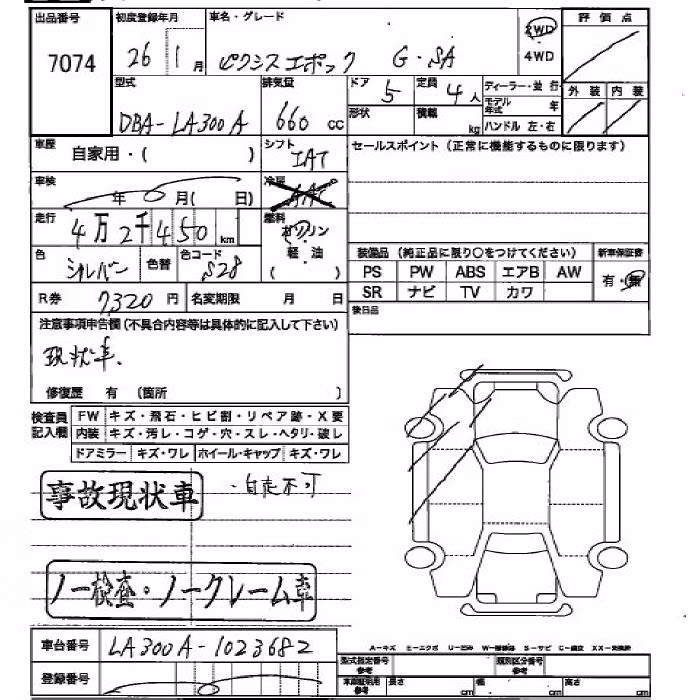 出品番号 初度登録年月 車名・グレード 2WD 評価点
7074 26 1月 ピクシスエポック G・SA 4WD
型式 排気量 ドア 5 定員 4人 ディーラー・並行 外装 内装
DBA-LA300A 660cc 形状 積載 kg モデル年式 年 ハンドル 左・右
車歴 自家用・( ) シフト IAT セールスポイント(正常に機能するものに限ります)
車検 年 月( 日) 冷房 AAC
走行 4万2千450km 燃料 ガソリン・軽油( )
色 シルバー 色替 色コード S28 装備品(純正品に限り○をつけてください) 新車保証書
PS PW ABS エアB AW 有・無
R券 7320円 名変期限 月 日 SR ナビ TV カワ
注意事項申告欄(不具合内容等は具体的に記入して下さい) 後日品
現状車.
修復歴 有 (箇所 )
検査員記入欄 FW キズ・飛石・ヒビ割・リペア跡・X要
内装 キズ・汚レ・コゲ・穴・スレ・ヘタリ・破レ
ドアミラー キズ・ワレ ホイール・キャップ キズ・ワレ
事故現状車 ・自走不可
ノー検査・ノークレーム車
車台番号 LA300A-1023682
A-キズ E-エクボ U-凹み S-サビ
型式指定番号 参考 類別区分番号 参考
登録番号 車庫証明用 参考 長さ cm 幅 cm 高さ cm